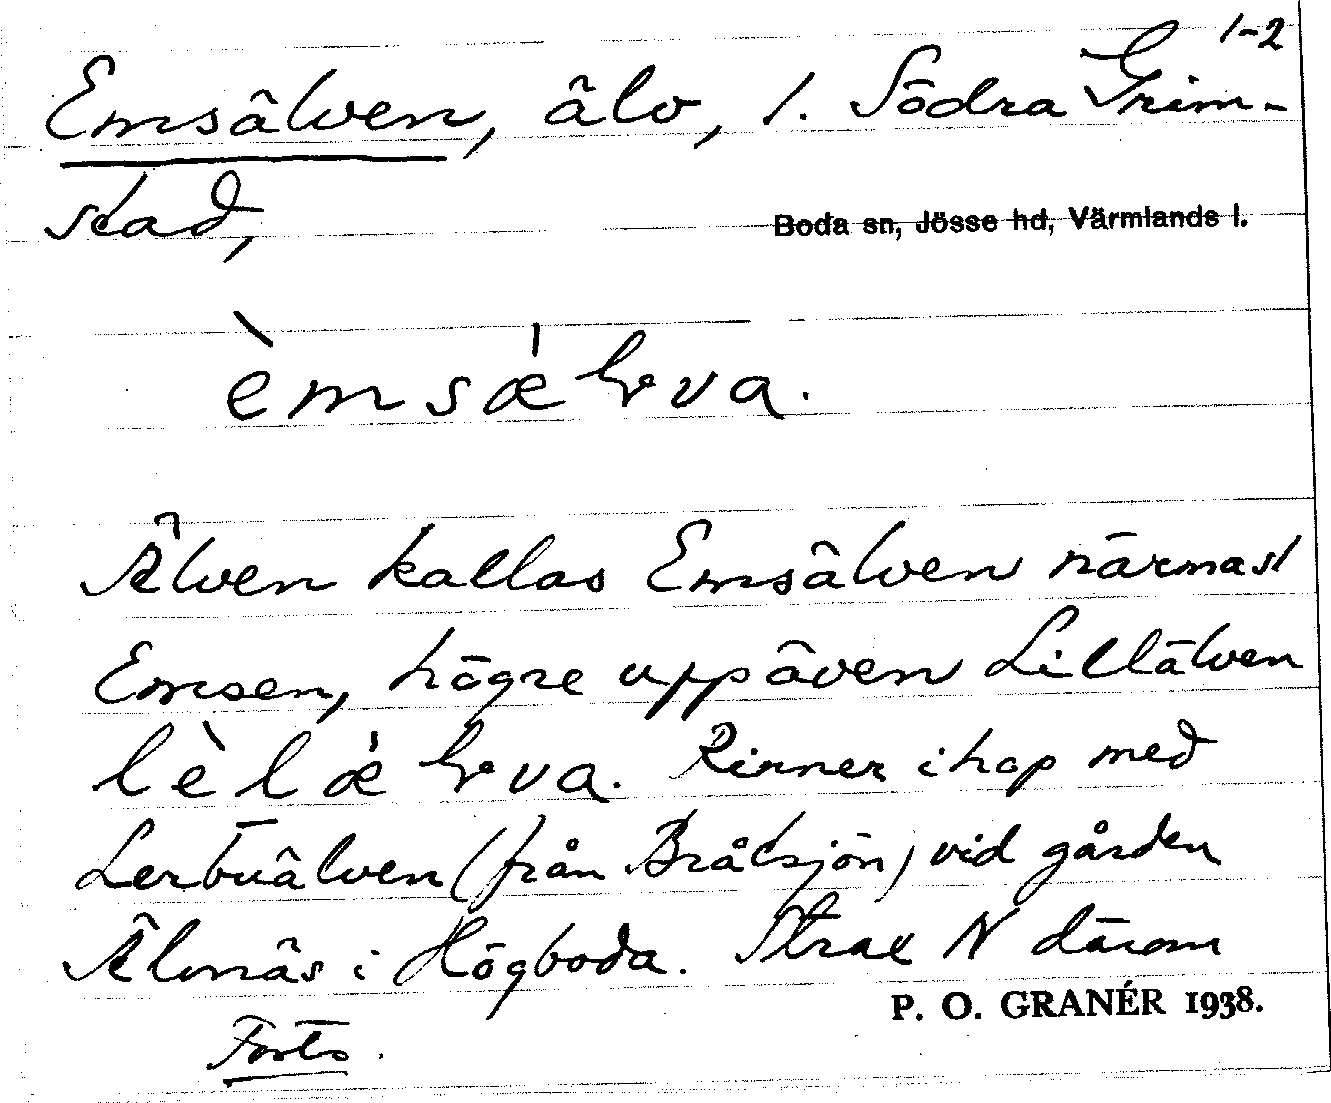 1-2
Emsälven, älv, 1. Södra Grim-
stad,
Boda sn, Jösse hd, Värmlands l.
èmsǽlva.
Älven kallas Emsälven närmast
Emsen, högre upp även Lillälven
lèlǽlva. Rinner ihop med
Lerbuälven (från Bråtsjön) vid gården
Älvnäs i Högboda. Strax N därom
P. O. GRANÉR 1938.
Forts.